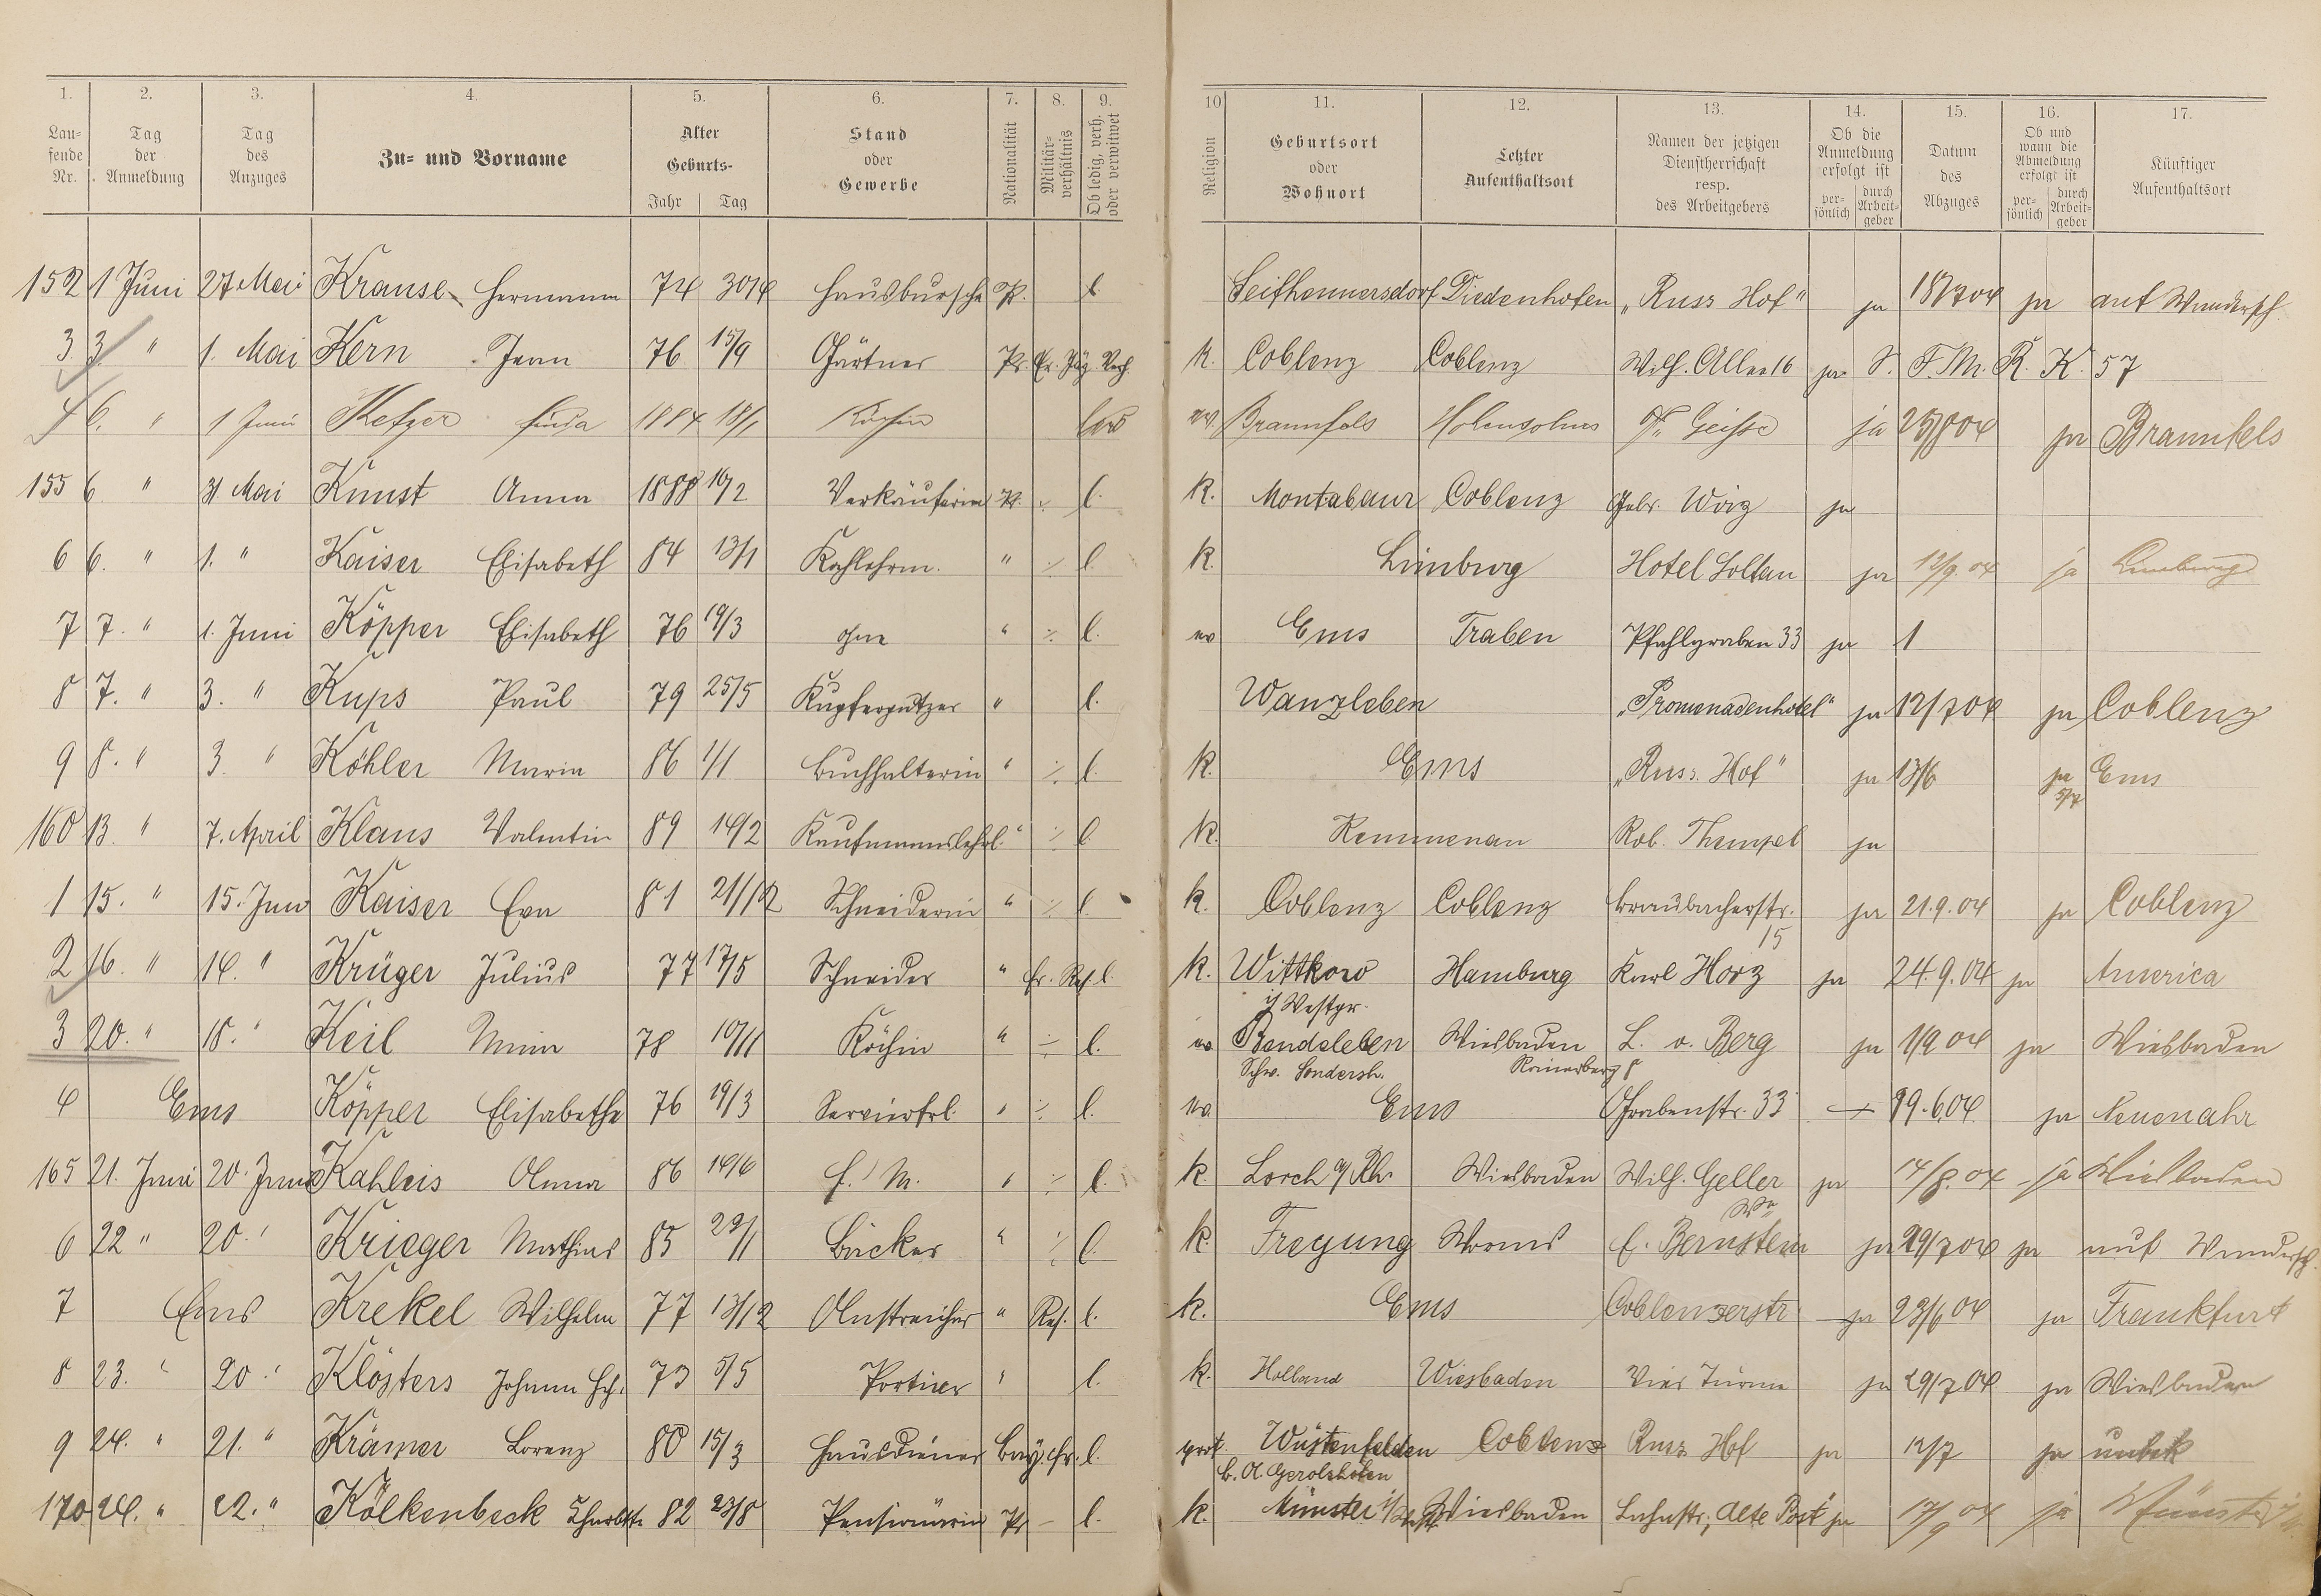 1. 2. 3. 4. 5. 6. 7. 8. 9. 10 11. 12. 13. 14. 15. 16. 17.
Lau-
fende
Nr.
Tag
der
Anmeldung
Tag
des
Anzuges
Zu- und Vorname
Alter
Geburts-
Jahr Tag
Stand
oder
Gewerbe
Nationalität
Militär-
verhältnis
Ob ledig, verh.
oder verwitwet
Religion
Geburtsort
oder
Wohnort
Letzter
Aufenthaltsort
Namen der jetzigen
Dienstherrschaft
resp.
des Arbeitgebers
Ob die
Anmeldung
erfolgt ist
per-
sönlich
durch
Arbeit-
geber
Datum
des
Abzuges
Ob und
wann die
Abmeldung
erfolgt ist
per-
sönlich
durch
Arbeit-
geber
Künftiger
Aufenthaltsort
152 1 Juni 27 Mai Krause Hermann 74 30/4 Hausbursche Pr. l Seifhennersdorf Diedenhofen „Russ Hof" ja 18/7 04 ja auf Wandersch.
3. 3. " 1. Mai Kern Jean 76 15/9 Gärtner Pr. Er. Verh. k. Coblenz Coblenz Wilh. Allee 16 ja S. F. M. R. K. 57
4 6. " 1 Juni 1884 18/1 Köchin led ev. Braunfels Hohensolms ja 04 ja Braunfels
155 6 " 31 Mai Kunst Anna 1888 10/2 Verkäuferin Pr. ./. l. k. Montabaur Coblenz Gebr. Wirz ja
6 6. " 1. " Kaiser Elisabeth 84 13/1 Kochlehrm. " ./. l. k. Limburg Hotel Soltau ja 12/9. 04 ja Limburg
7 7. " 1. Juni Köpper Elisabeth 76 19/3 ohne " ./. l. ev Ems Traben Pfahlgraben 33 ja 1
8 7. " 3. " Kups Paul 79 25/5 Kupferputzer " l. Wanzleben „Promenadenhotel" ja 12/7 04 ja Coblenz
9 8. " 3. " Köhler Maria 86 1/1 Buchhalterin " ./. l. k. Ems „Russ. Hof" ja 13/6 ja Ems
5/7
160 13. " 7. April Klaus Valentin 89 14/2 Kaufmannslehrl. " ./. l k. Kemmenau Rob. Thempel ja
1 15. " 15. Juni Kaiser Eva 81 21/12 Schneiderin " ./. l. k. Coblenz Coblenz Braubacherstr. ja 21.9.04 ja Coblenz
15
2 16. " 14. " Krüger Julius 77 17/5 Schneider " Er. Res. l. k. Wittkow Hamburg Karl Horz ja 24.9.04 ja America
i/ Westpr.
3 20. " 18. " Keil Minna 78 10/11 Köchin " ./. l. ev Bendeleben Wiesbaden L. v. Berg ja 1/9 04 ja Wiesbaden
Schw. Sondersh. Römerberg 8
4 Ems Köpper Elisabethe 76 19/3 Servierfrl. " ./. l. ev. Ems Grabenstr. 33 29.6.04 ja Neuenahr
165 21. Juni 20. Juni Kahleis Anna 86 14/6 f. M. " ./. l. k. Lorch a/Rh. Wiesbaden Wilh. Geller ja 14/8. 04 ja Wiesbaden
Ww
6 22 " 20. " Krieger Mathias 85 22/11 Bäcker " ./. l. k. Freyung Worms E. Bernstein ja 29/7 04 ja auf Wandersch.
7 Ems Krekel Wilhelm 77 13/12 Anstreicher " Res. l. k. Ems Coblenzerstr. ja 23/6 04 ja Frankfurt
8 23. " 20. " Klösters Johann Hch. 73 5/5 Portier " l. k. Holland Wiesbaden Vier Türme ja 29/7 04 ja Wiesbaden
9 24. " 21. " Krämer Lorenz 80 15/3 Hausdiener Bay. Er. l. prot. Wüstenfelden Coblenz Russ Hof ja 12/7 ja unbek
B. A. Gerolzhofen
170 24. " 22. " Kölkenbeck 82 23/8 Pensionärin Pr — l. k. Münster i/ Wiesbaden Lahnstr., Alte Post ja 17/9 04 ja Münster